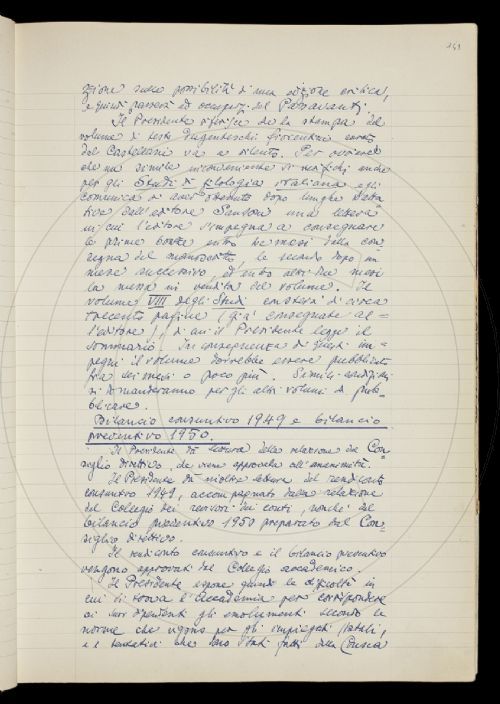 241
zione sulla possibilità di una edizione critica,
e quindi passerà ad occuparsi del Passavanti.
Il Presidente riferisce che la stampa del
volume di testi dugenteschi fiorentini curato
dal Castellani va a rilento. Per ovviare
che un simile inconveniente si verifichi anche
per gli Studi di filologia italiana egli
comunica di aver ottenuto dopo lunghe
dall'editore Sansoni una lettera
in cui l'editore s'impegna a consegnare
le prime bozze entro tre mesi dalla con-
segna del manoscritto, le seconde dopo un
mese successivo, ed entro altri due mesi
la messa in vendita del volume. Il
volume VIII degli Studi consterà di circa
trecento pagine (già consegnate al-
l'editore), di cui il Presidente legge il
sommario. In conseguenza di questi im-
pegni il volume dovrebbe essere pubblicato
fra sei mesi o poco più. Simili condizioni
si domanderanno per gli altri volumi da pub-
blicare.
Bilancio consuntivo 1949 e bilancio
preventivo 1950.
Il Presidente dà lettura della relazione del Con-
siglio direttivo, che viene approvata all'unanimità.
Il Presidente dà inoltre lettura del rendiconto
consuntivo 1949, accompagnato dalla relazione
del Collegio dei revisori dei conti, nonché del
bilancio preventivo 1950 preparato dal Con-
siglio direttivo.
Il rendiconto consuntivo e il bilancio preventivo
vengono approvati dal Collegio accademico.
Il Presidente espone quindi le difficoltà in
cui si trova l'Accademia per corrispondere
ai suoi dipendenti gli emolumenti secondo le
norme che vigono per gli impiegati statali,
e i tentativi che sono stati fatti dalla Crusca